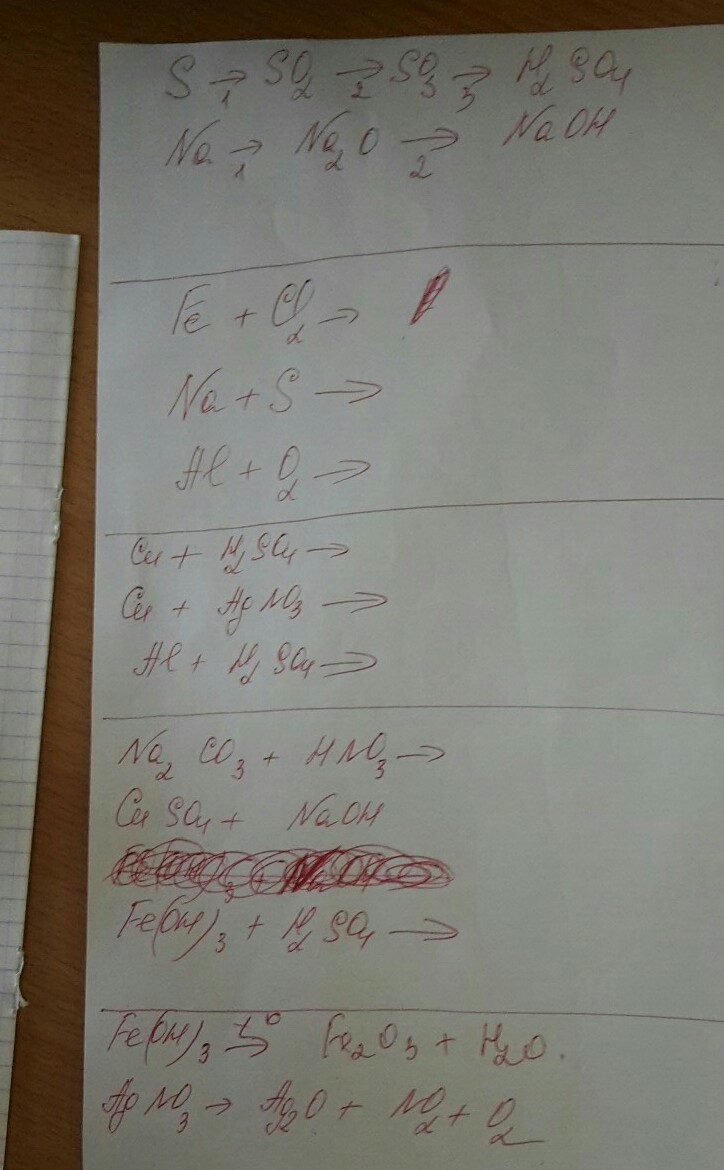 S →1 SO2 →2 SO3 →3 H2SO4
Na →1 Na2O →2 NaOH
Fe + Cl2 →
Na + S →
Al + O2 →
Cu + H2SO4 →
Cu + AgNO3 →
Al + H2SO4 →
Na2CO3 + HNO3 →
CuSO4 + NaOH
Fe(OH)3 + H2SO4 →
Fe(OH)3 t°→ Fe2O3 + H2O.
AgNO3 → Ag2O + NO2 + O2